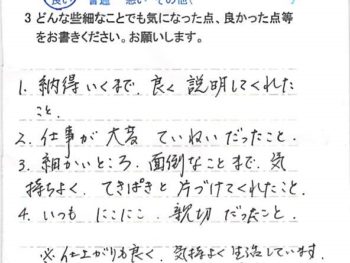 良い 普通 悪い その他(
3 どんな些細なことでも気になった点、良かった点等
をお書きください。お願いします。
1. 納得いくまで、良く説明してくれた
こと。
2. 仕事が大変ていねいだったこと。
3. 細かいところ、面倒なことまで、気
持ちよく、てきぱきと片づけてくれたこと。
4. いつもにこにこ、親切だったこと。
※仕上がりも良く、気持よく生活しています。